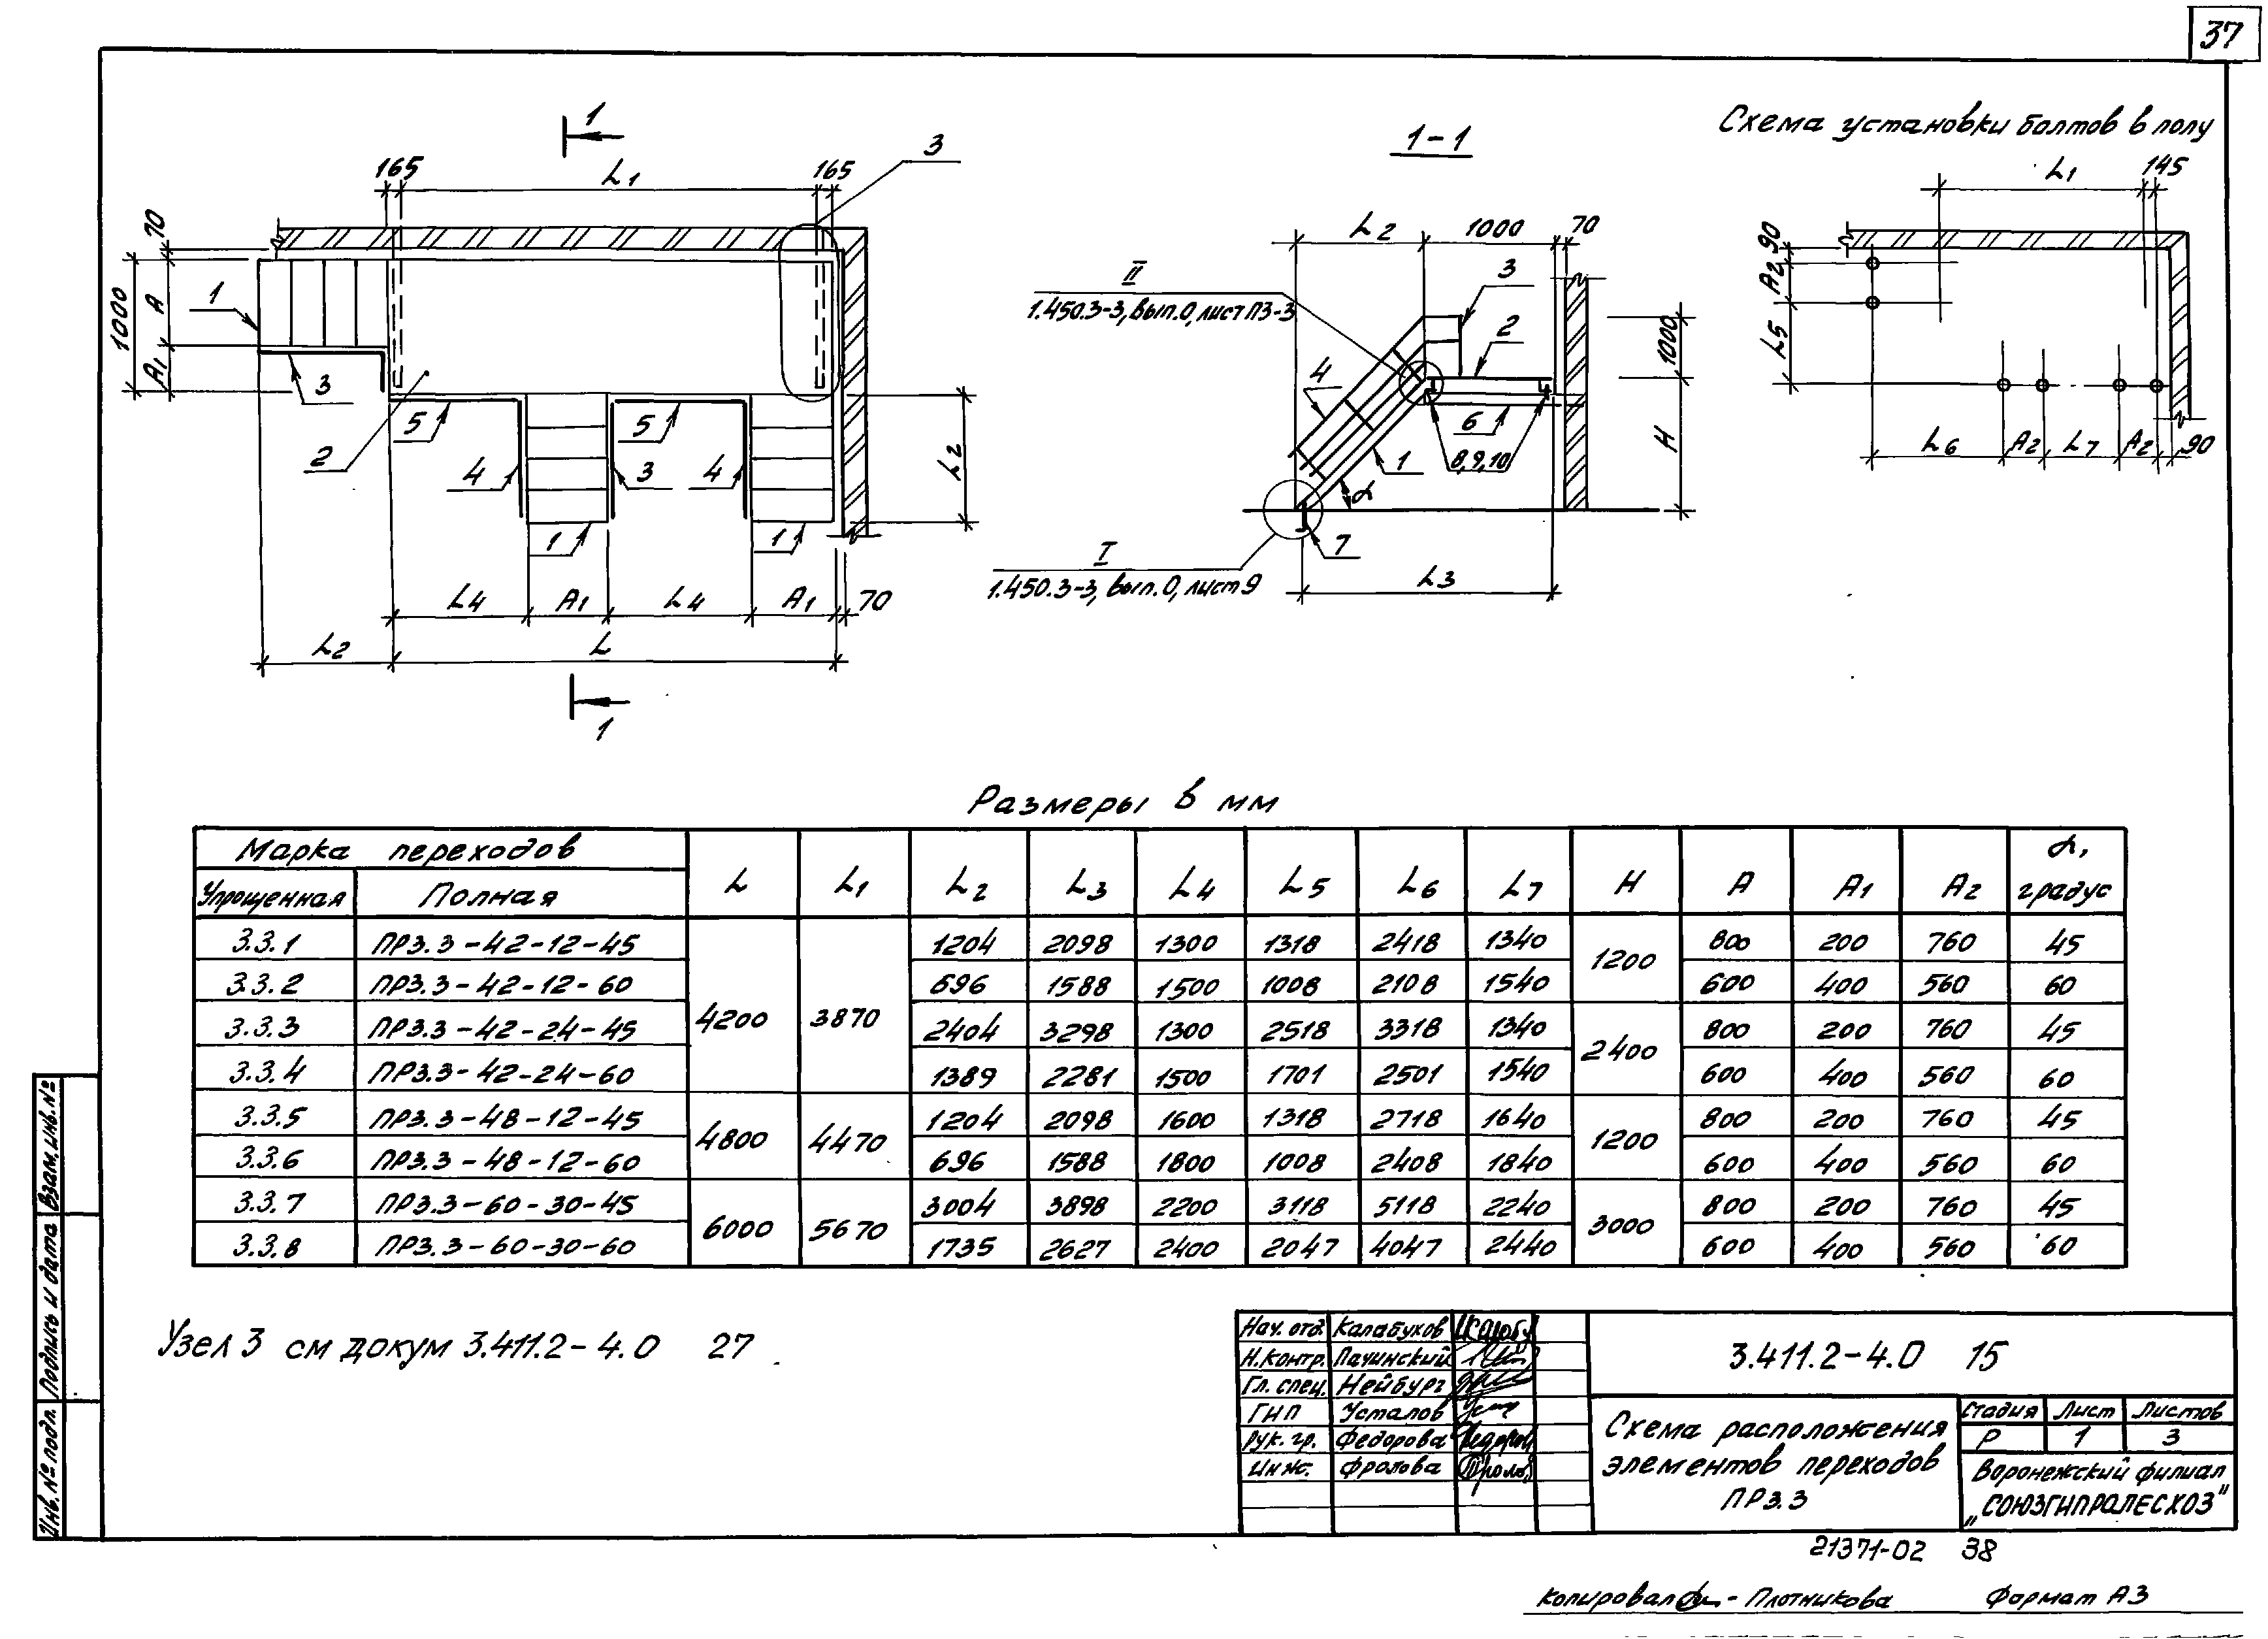 37
1
165 L1 165 3
70
1000 A A1
1
3
2
5 5
4 3 4
1 1
L2
L4 A1 L4 A1 70
L2 L
1
1-1
L2 1000 70
II
1.450.3-3, вып.0, лист П3-3
3
2
4
1000
6
H
1
8,9,10
α
7
I
1.450.3-3, вып.0, лист 9
L3
Схема установки болтов в полу
L1 145
90
A2
L5
L6 A2 L7 A2 90
Размеры в мм
Марка переходов L L1 L2 L3 L4 L5 L6 L7 H A A1 A2 α, градус
Упрощенная Полная
3.3.1 ПР3.3-42-12-45 4200 3870 1204 2098 1300 1318 2418 1340 1200 800 200 760 45
3.3.2 ПР3.3-42-12-60 696 1588 1500 1008 2108 1540 600 400 560 60
3.3.3 ПР3.3-42-24-45 2404 3298 1300 2518 3318 1340 2400 800 200 760 45
3.3.4 ПР3.3-42-24-60 1389 2281 1500 1701 2501 1540 600 400 560 60
3.3.5 ПР3.3-48-12-45 4800 4470 1204 2098 1600 1318 2718 1640 1200 800 200 760 45
3.3.6 ПР3.3-48-12-60 696 1588 1800 1008 2408 1840 600 400 560 60
3.3.7 ПР3.3-60-30-45 6000 5670 3004 3898 2200 3118 5118 2240 3000 800 200 760 45
3.3.8 ПР3.3-60-30-60 1735 2627 2400 2047 4047 2440 600 400 560 60
Узел 3 см докум 3.411.2-4.0 27
Взам.инв.№
Подпись и дата
Инв.№ подл.
Нач. отд. Калабухов
Н.контр. Пачинский
Гл. спец. Нейбург
ГИП Усталов
Рук. гр. Федорова
Инж. Фролова
3.411.2-4.0 15
Схема расположения
элементов переходов
ПР3.3
Стадия Лист Листов
Р 1 3
Воронежский филиал
„СОЮЗГИПРОЛЕСХОЗ"
21371-02 38
Копировал - Плотникова Формат А3